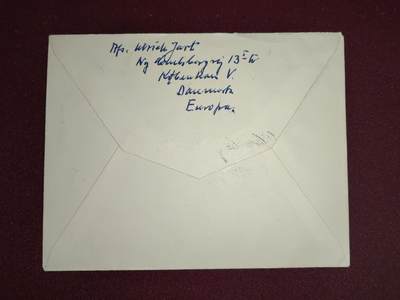 Afs. Ulrich Jart
Ny Carlsbergvej 13 I tv
København V.
Danmark
Europa.